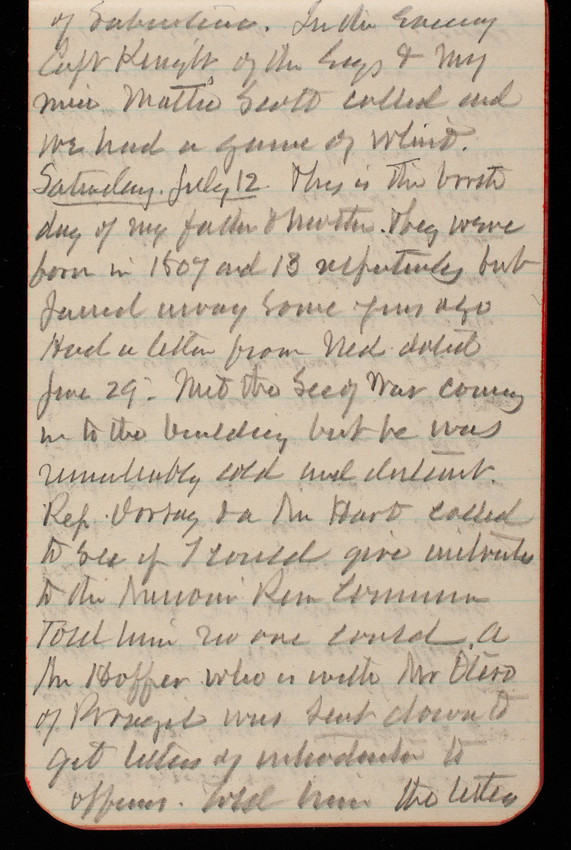 of Subsistence. In the Evening
Capt Knight of the Engs & my
niece Mattie Scott called and
we had a game of Whist.
Saturday. July 12 This is the birth
day of my father & Mother. They were
born in 1807 and 13 respectively but
passed away some years ago
Had a letter from Ned dated
June 29. Met the Secy War coming
in to the building but he was
remarkably cold and distant.
Rep. & a Mr Hart called
to see if I could give
to the Missouri River Commission
Told him no one could. A
Mr Hoffer who is with Mr Otero
of was sent down to
get letters of introduction to
officers. Told him the letters